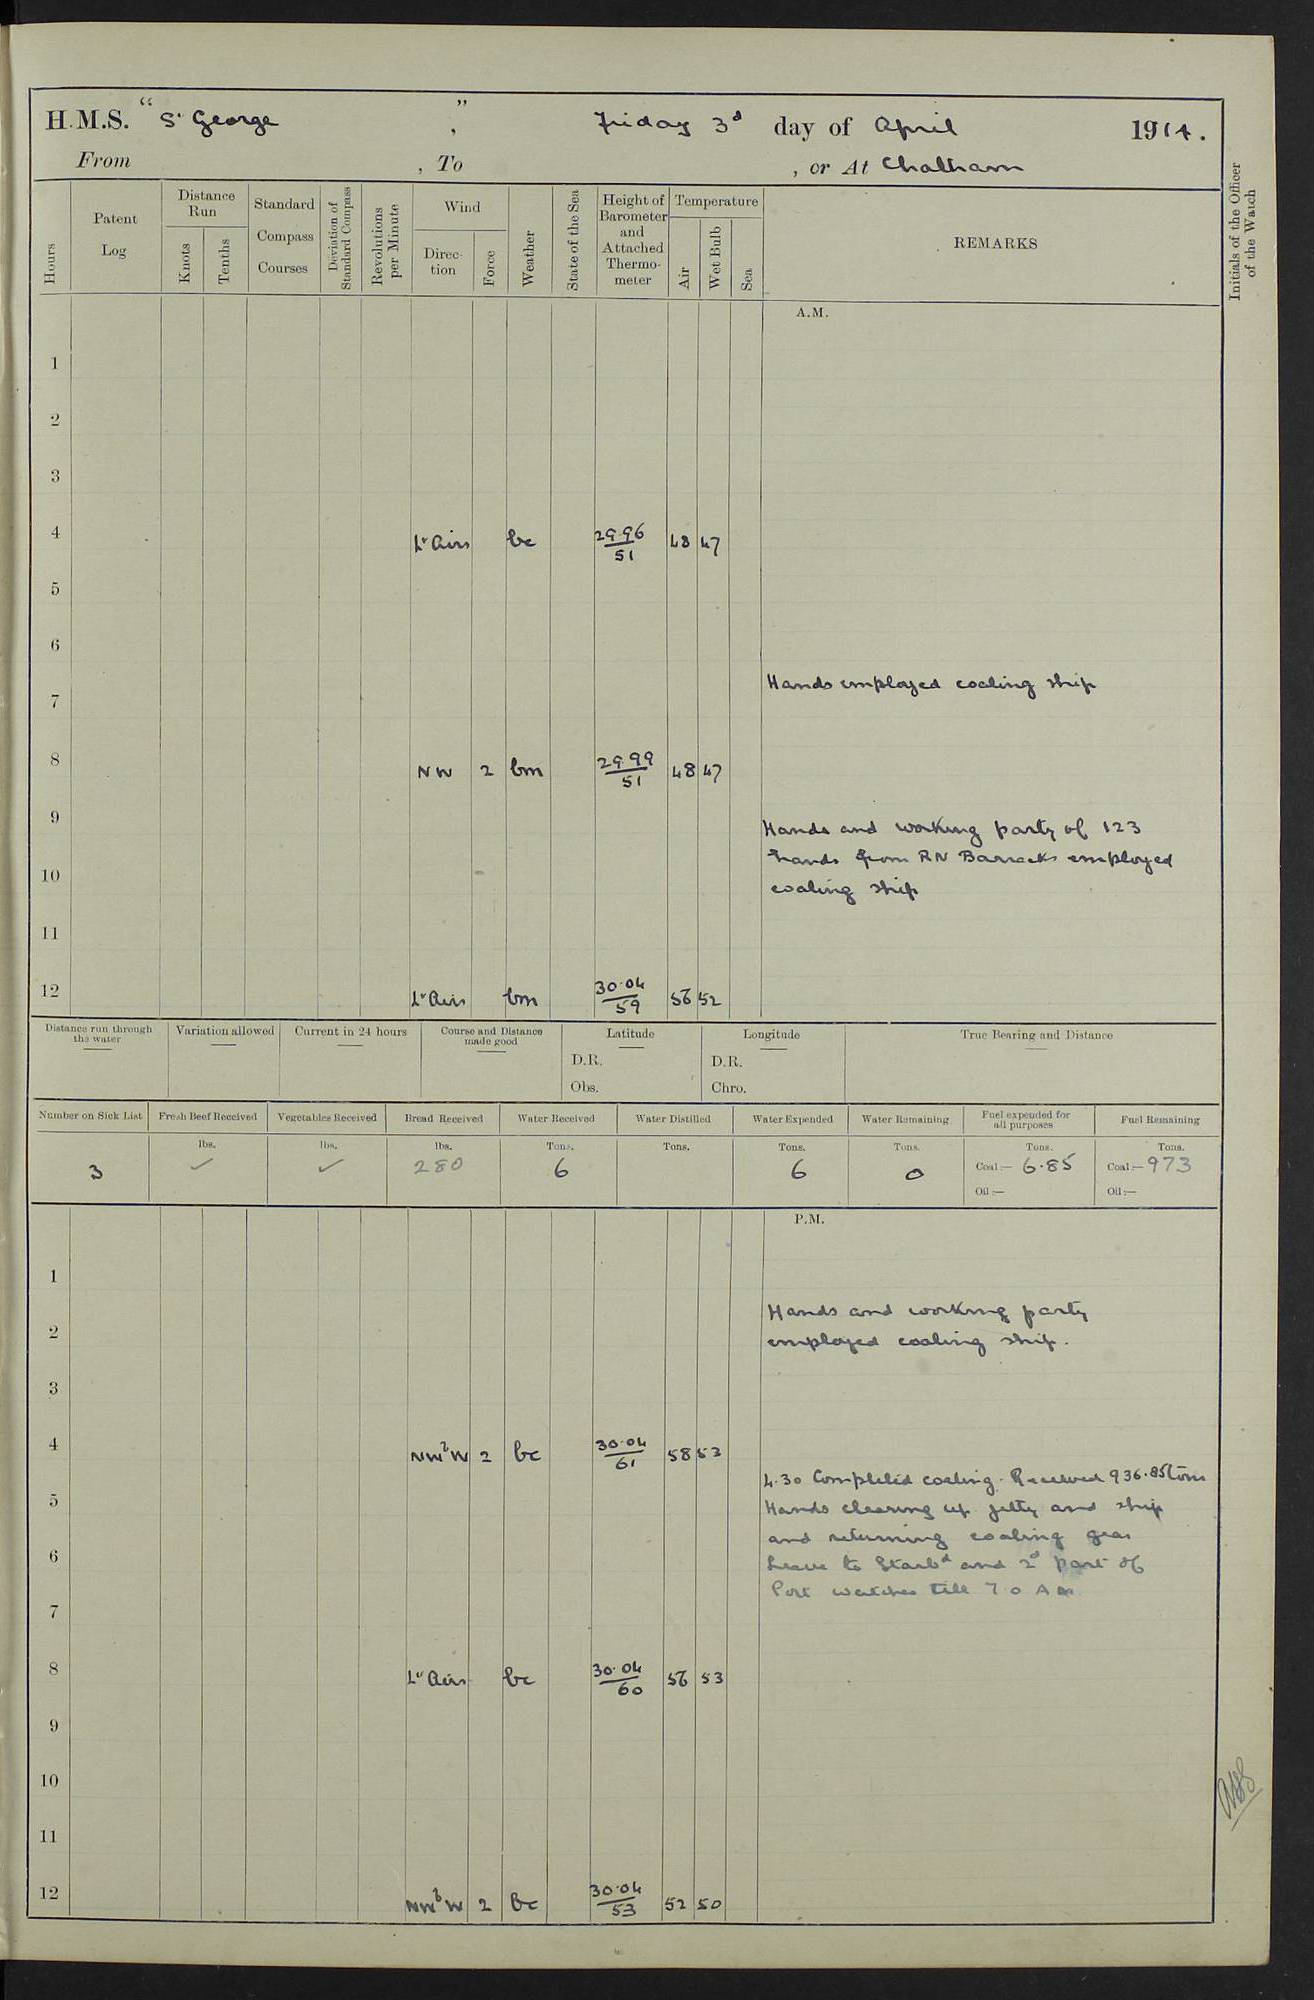 H.M.S. "St George", Friday 3d day of April 1914.
From , To , or At Chatham
Hours
Patent Log
Distance Run
Knots
Tenths
Standard Compass Courses
Deviation of Standard Compass
Revolutions per Minute
Wind
Direction
Force
Weather
State of the Sea
Height of Barometer and Attached Thermometer
Temperature
Air
Wet Bulb
Sea
REMARKS
Initials of the Officer of the Watch
A.M.
1
2
3
4 Lt Airs bc 29.96/51 48 47
5
6
Hands employed coaling ship
7
8 NW 2 bm 29.99/51 48 47
9
Hands and working party of 123
hands from RN Barracks employed
10
coaling ship
11
12 Lt Airs bm 30.04/59 56 52
Distance run through the water
Variation allowed
Current in 24 hours
Course and Distance made good
Latitude
D.R.
Obs.
Longitude
D.R.
Chro.
True Bearing and Distance
Number on Sick List
3
Fresh Beef Received
lbs.
✓
Vegetables Received
lbs.
✓
Bread Received
lbs.
280
Water Received
Tons.
6
Water Distilled
Tons.
Water Expended
Tons.
6
Water Remaining
Tons.
0
Fuel expended for all purposes
Tons.
Coal:— 6.85
Oil:—
Fuel Remaining
Tons.
Coal:— 973
Oil:—
P.M.
1
Hands and working party
2
employed coaling ship.
3
4 NWbW 2 bc 30.04/61 58 53
4.30 Completed coaling. Received 936.85 tons
5
Hands clearing up jetty and ship
and returning coaling gear
6
Leave to Starbd and 2d part of
Port watches till 7 0 AM
7
8 Lt Airs bc 30.04/60 56 53
9
10
11
12 NWbW 2 bc 30.04/53 52 50